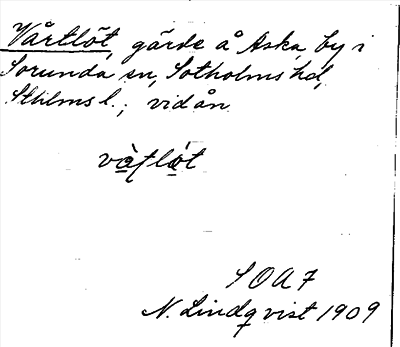 Vårtlöt, gärde å Aska, by i
Sorunda sn, Sotholms hd,
Sthlms l.; vid ån.
SOA 7
N. Lindqvist 1909